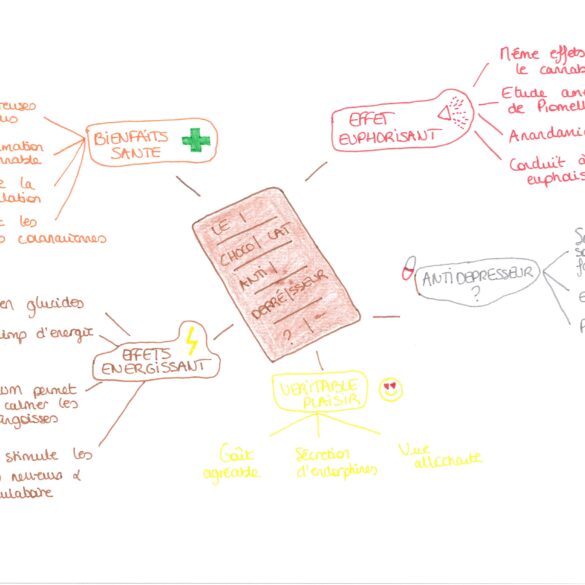 LE
CHOCOLAT
ANTI
DEPRESSEUR
?
BIENFAITS
SANTE
coronariennes
EFFET
EUPHORISANT
Même effets
le cannab
Etude am
de Piomell
Anandami
Conduit à
euphois
ANTIDEPRESSEUR
?
EFFETS
ENERGISSANT
en glucides
imp d'energie
um permet
calmer les
angoisses
stimule les
nerveux &
culaire
VERITABLE
PLAISIR
Goût
agréable
Sécretion
d'endorphines
Vue
alléchante